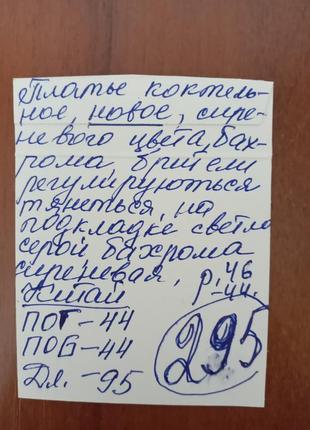 Платье коктель-
ное, новое, сире-
невого цвета, бах-
рома брители
регулируються
тянеться, на
подкладке светло
серой бахрома
сиреневая, р. 46
Китай -44.
ПОГ-44
ПОБ-44
Дл. -95
295